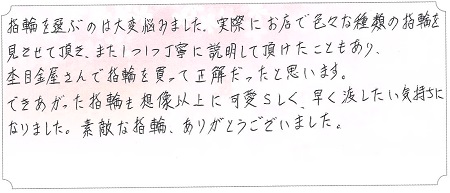 指輪を選ぶのは大変悩みました。実際にお店で色々な種類の指輪を
見させて頂き、また1つ1つ丁寧に説明して頂けたこともあり、
杢目金屋さんで指輪を買って正解だったと思います。
できあがった指輪も想像以上に可愛らしく、早く渡したい気持ちに
なりました。素敵な指輪、ありがとうございました。